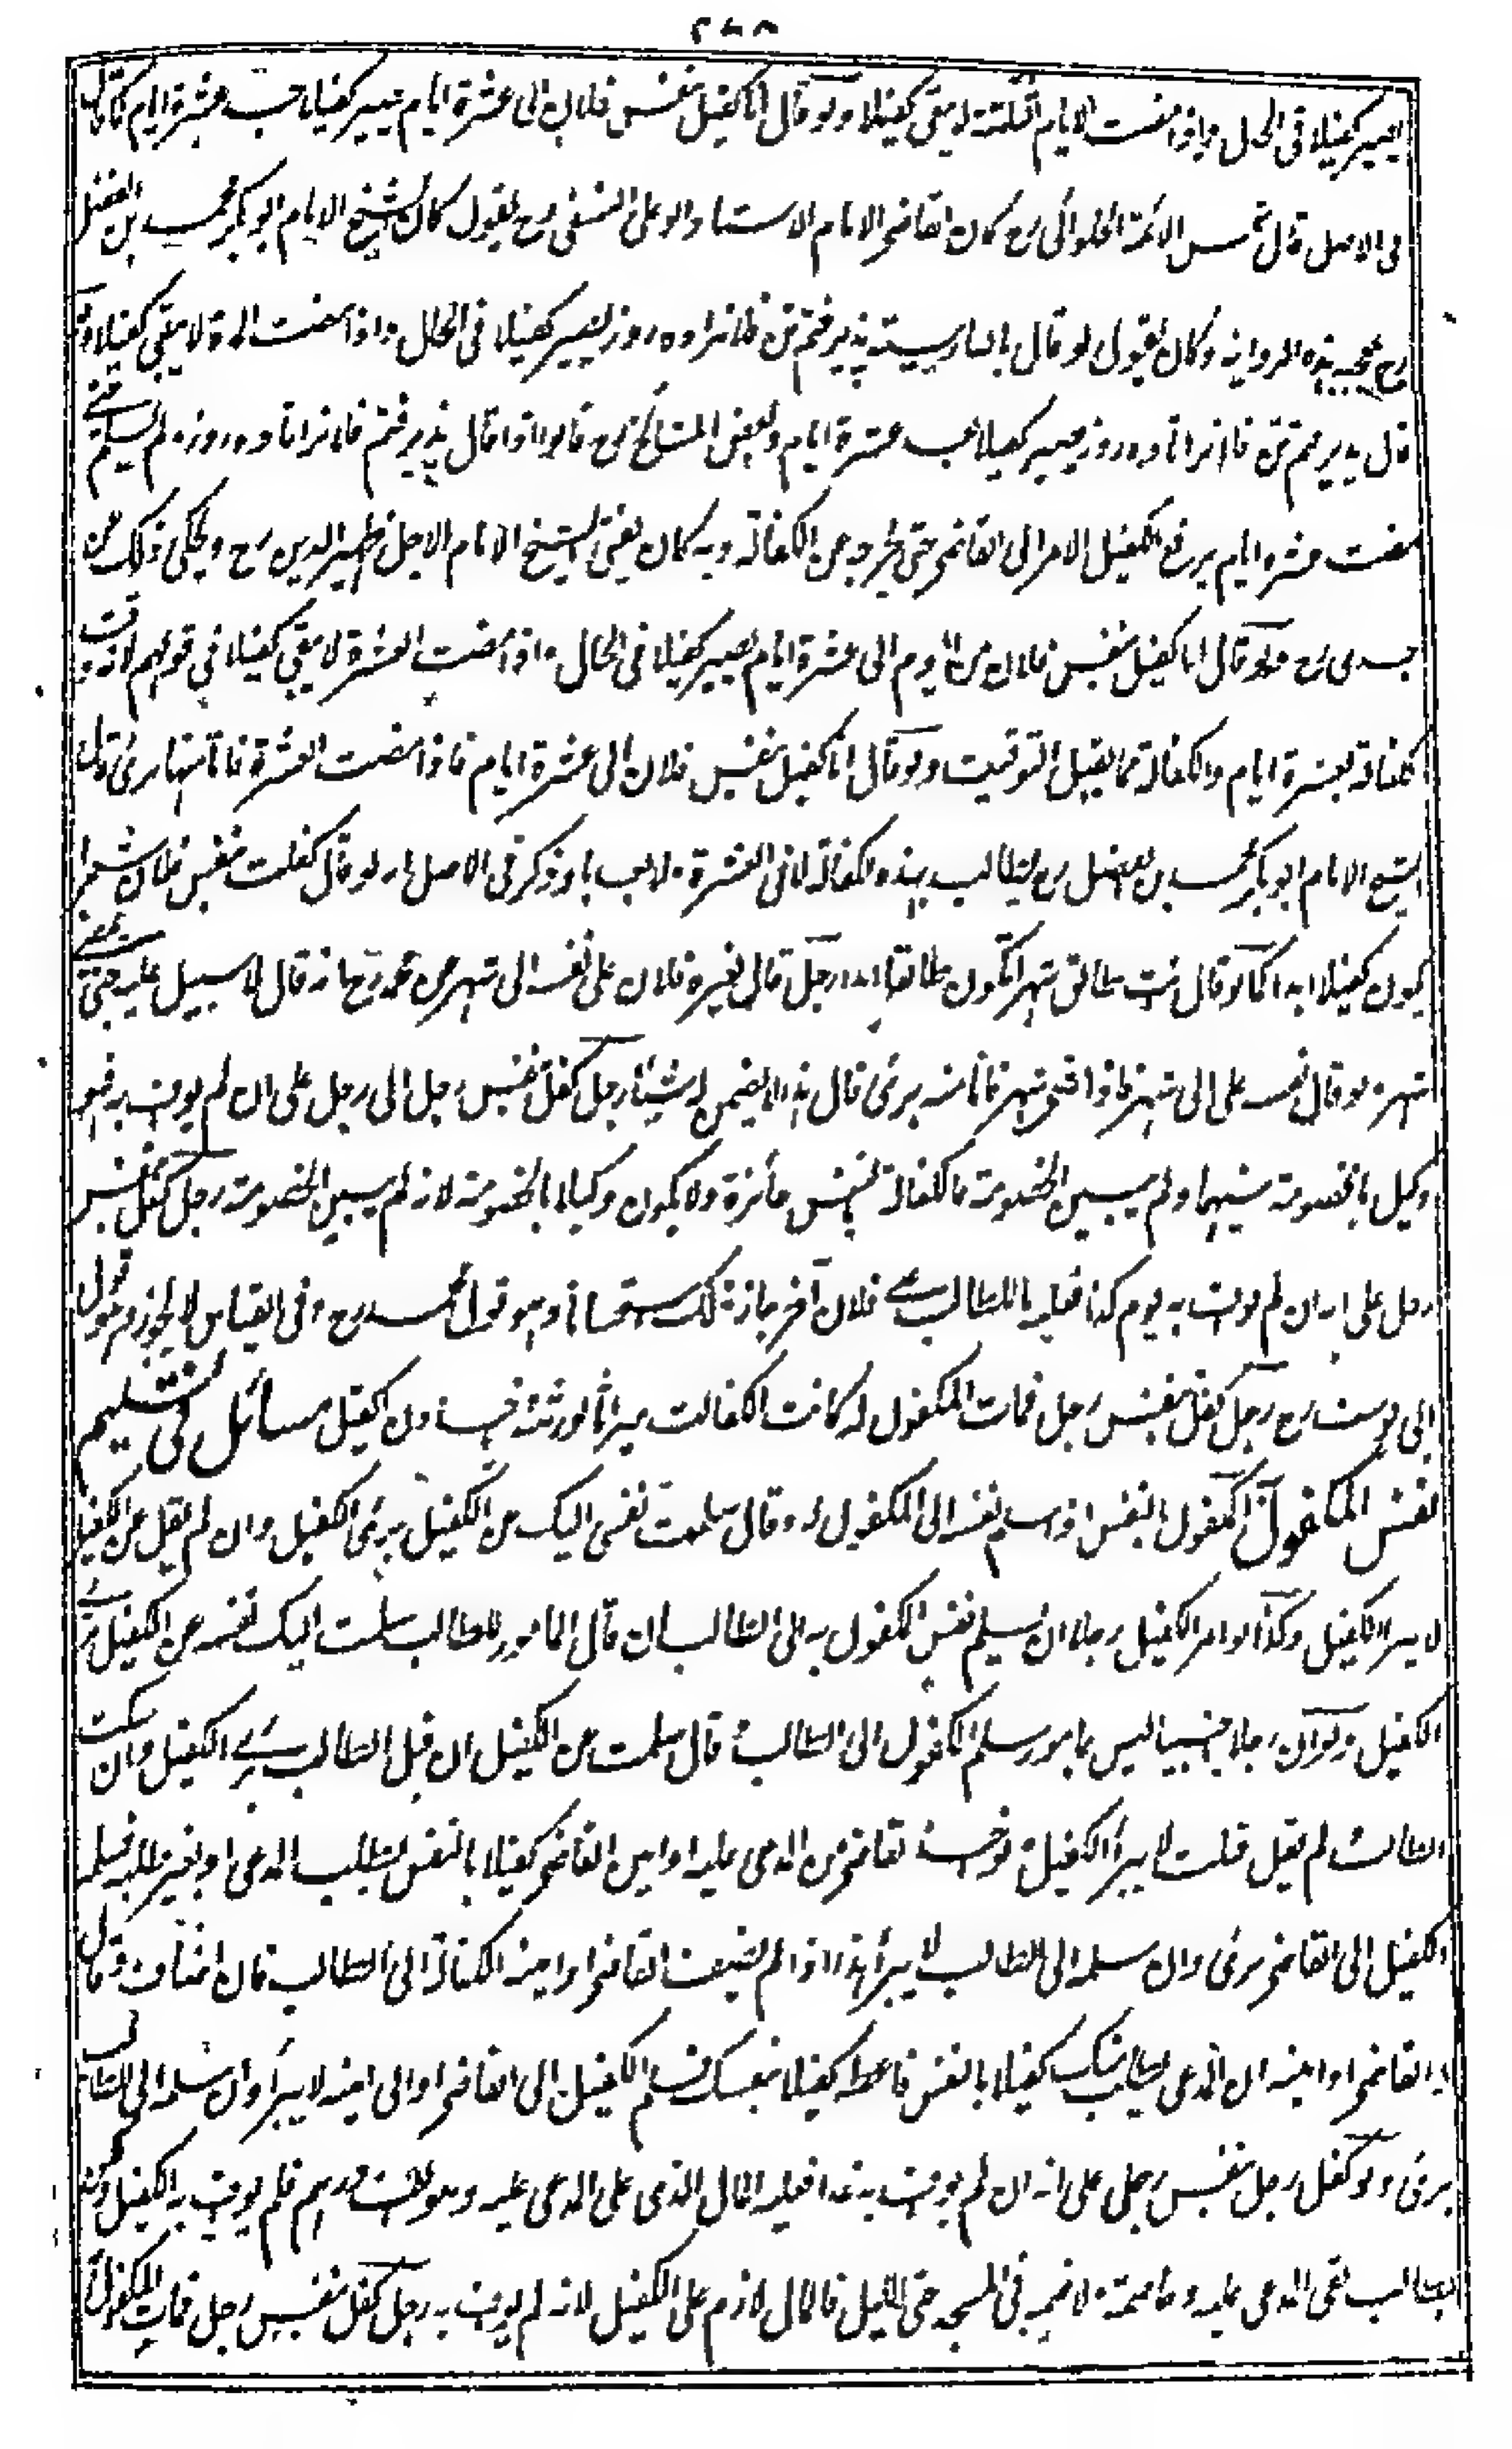 ٢٧٨
يصير كفيلا فى الحال واذا مضت الايام الثلثة لا يبقى كفيلا ولو قال انا كفيل بنفس فلان الى عشرة ايام يصير كفيلا بعد عشرة ايام كما قال
فى الاصل قال شمس الائمة الحلوائى رح كان القاضى الامام الاستاذ ابو على النسفى رح يقول كان الشيخ الامام ابو بكر محمد بن الفضل
رح يعجبه هذه الرواية وكان يقول لو قال بالفارسية پذيرفتم تن فلانرا ده روز يصير كفيلا فى الحال واذا مضت المدة لا يبقى كفيلا ولو
قال پذيرفتم تن فلانرا تا ده روز يصير كفيلا بعد عشرة ايام وبعض المشائخ رح قالوا اذا قال پذيرفتم فلانرا تا ده روز لم يسلم حتى
مضت عشرة ايام يرفع الكفيل الامر الى القاضى حتى يخرجه عن الكفالة وبه كان يفتى الشيخ الامام الاجل ظهير الدين رح ويحكى ذلك عن
جدى رح ولو قال انا كفيل بنفس فلان من اليوم الى عشرة ايام يصير كفيلا فى الحال واذا مضت العشرة لا يبقى كفيلا فى قولهم لانه وقت
الكفالة بعشرة ايام والكفالة مما يقبل التوقيت ولو قال انا كفيل بنفس فلان الى عشرة ايام فاذا مضت العشرة فانا منها برئ قال
الشيخ الامام ابو بكر محمد بن الفضل رح لا يطالب بهذه الكفالة لا فى العشرة ولا بعدها وذكر فى الاصل لو قال كفلت بنفس فلان شهرا
يكون كفيلا ابدا كما لو قال انت طالق شهرا تكون طالقا ابدا رجل قال لغيره فلان على نفسه الى شهر عن محمد رح انه قال لا سبيل عليه حتى يمضى
شهر ولو قال نفسه على الى شهر فاذا مضى شهر فانا منه برئ قال هذا لا يضمن له شيئا رجل كفل بنفس رجل الى رجل على ان لم يوف به فهو
وكيل بالخصومة بينهما ولم يبين الخصومة فالكفالة بالنفس جائزة ولا يكون وكيلا بالخصومة لانه لم يبين الخصومة رجل كفل بنفس
رجل على انه ان لم يوف به يوم كذا فعليه ما للطالب على فلان آخر جاز ذلك استحسانا وهو قول محمد رح وفى القياس لا يجوز وهو قول
ابى يوسف رح رجل كفل بنفس رجل فمات المكفول له كانت الكفالة ميراثا لورثته مسائل فى تسليم
نفس المكفول المكفول بالنفس اذا سلم نفسه الى المكفول له وقال سلمت نفسى اليك عن الكفيل برئ الكفيل وان لم يقل عن الكفيل
لا يبرأ الكفيل وكذا لو امر الكفيل رجلا ان يسلم نفس المكفول به الى الطالب ان قال المامور للطالب سلمت اليك نفسه عن الكفيل برئ
الكفيل ولو ان رجلا اجنبيا ليس بمامور سلم المكفول الى الطالب وقال سلمت عن الكفيل ان قبل الطالب برئ الكفيل وان سكت
الطالب لم يقل قبلت لا يبرأ الكفيل ولو اخذ القاضى من المدعى عليه او امين القاضى كفيلا بالنفس بطلب المدعى او بغير طلبه فسلمه
الكفيل الى القاضى برئ وان سلمه الى الطالب لا يبرأ هذا اذا لم يضف القاضى او امينه الكفالة الى الطالب فان اضاف وقال
له القاضى او امينه ان المدعى يطلب منك كفيلا بالنفس فاعطه كفيلا بنفسك فسلم الكفيل الى القاضى او الى امينه لا يبرأ وان سلمه الى الطالب
برئ ولو كفل رجل بنفس رجل على انه ان لم يوف به غدا فعليه المال الذى على المدعى عليه وهو الف درهم فلم يوف به الكفيل ولكن
الطالب لقى المدعى عليه وخاصمه ولازمه فى المسجد حتى الليل فالمال لازم على الكفيل لانه لم يوف به رجل كفل بنفس رجل فمات المكفول